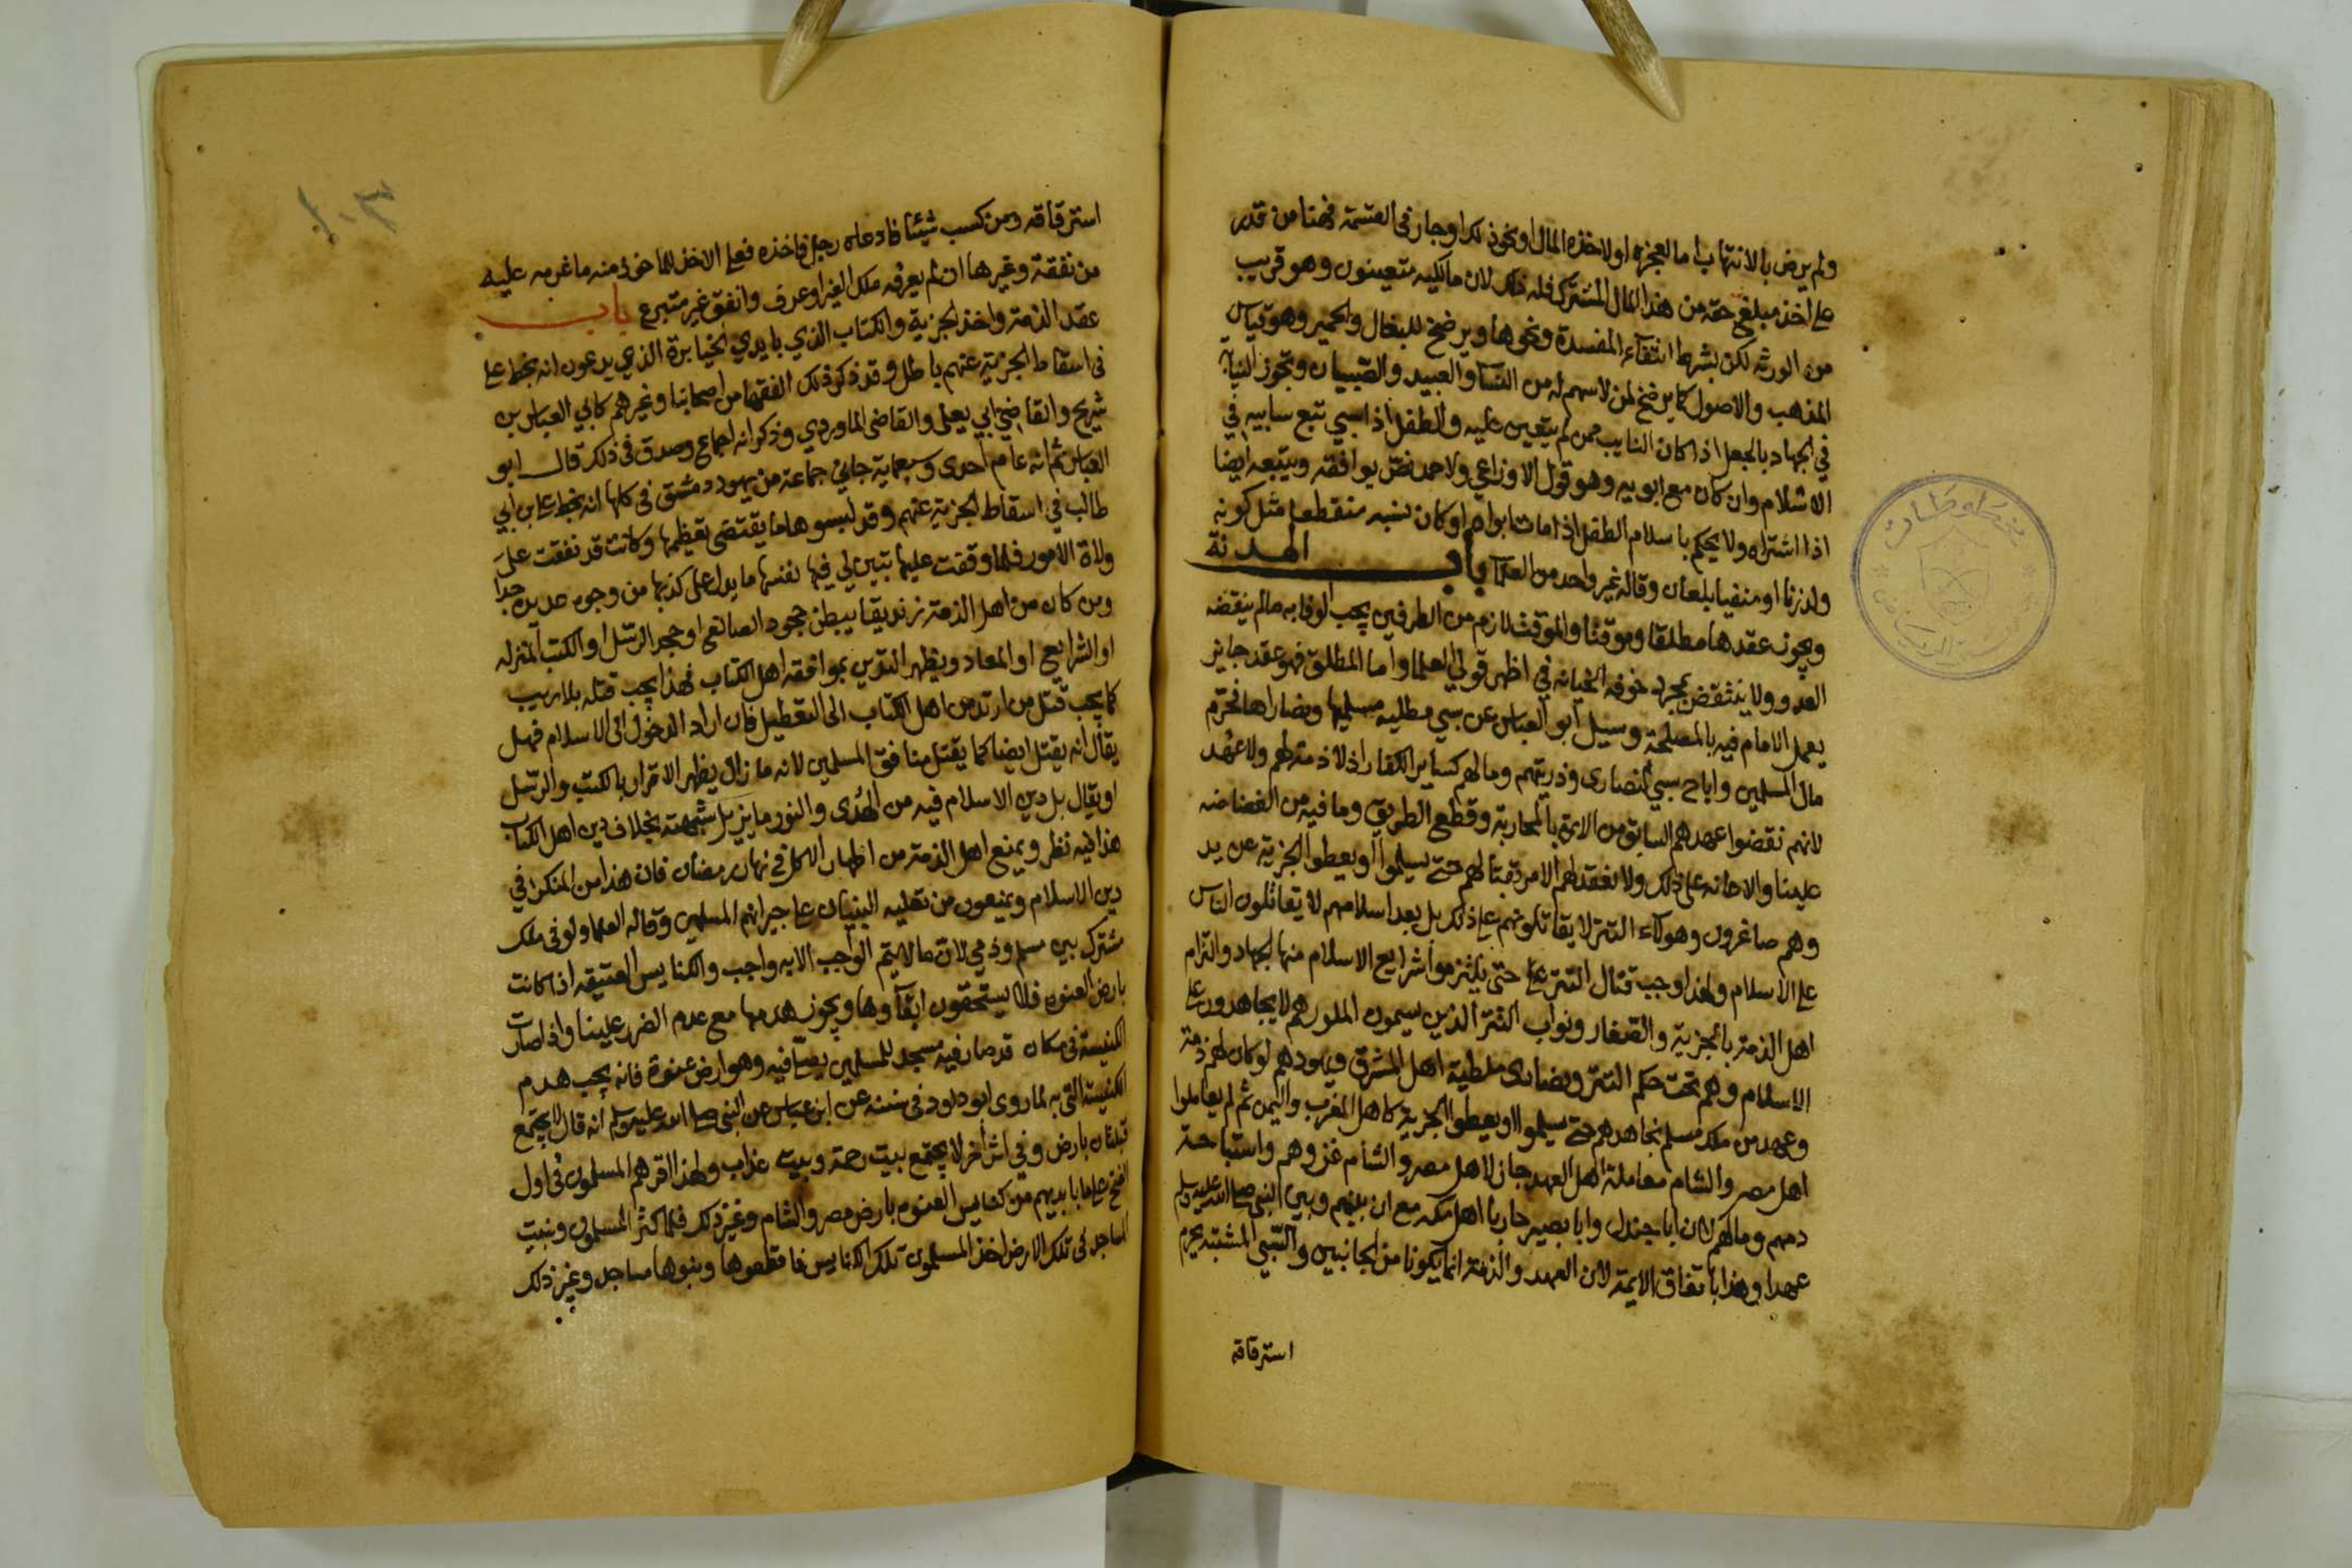 ولم يرض بالانتهاب اما لعجزه اولاخذه المال او نحو ذلك او جار في القسمة فهنا من قدر
على اخذ مبلغ حقه من هذا المال المشترك فله ذلك لان مالكيه متعينون وهو قريب
من الورثه لكن بشرط انتفآء المفسدة ونحوها ويرضخ للبغال والحمير وهو قياس
المذهب والاصول كما يرضخ لمن لا سهم له من النسآ والعبيد والصبيان وتجوز النيابة
في الجهاد بالجعل اذا كان النايب ممن لم يتعين عليه والطفل اذا سبي تبع سابيه في
الاسلام وان كان مع ابويه وهو قول الاوزاعي ولاحمد نصّ يوافقه ويتبعه ايضا
اذا اشتراه ولا يحكم باسلام الطفل اذا مات ابواه او كان نسبه منقطعا مثل كونه
ولد زنا او منفيا بلعان وقاله غير واحد من العلمآ باب الهدنة
ويجوز عقدها مطلقا وموقتا والموقت لازم من الطرفين يجب الوفا به مالم ينقضه
العدو ولا ينتقض بمجرد خوف الخيانه في اظهر قولي العلما واما المطلق فهو عقد جايز
يعمل الامام فيه بالمصلحة وسيل ابو العباس عن سبي مطليه مسلميها ونصاراها فحرّم
مال المسلمين واباح سبي النصارى وذريتهم ومالهم كساير الكفار اذ لا ذمة لهم ولا عهد
لانهم نقضوا عهدهم السابق من الايمة بالمحاربة وقطع الطريق وما فيه من الغضاضه
علينا والاعانه على ذلك ولا نعقد لهم الا من قتالهم حتى يسلموا او يعطوا الجزية عن يد
وهم صاغرون وهولاء التتر لا يقاتلونهم على ذلك بل بعد اسلامهم لا يقاتلون الناس
على الاسلام ولهذا وجب قتال التتر حتى يلتزموا شرايع الاسلام منها الجهاد والزام
اهل الذمة بالجزية والصغار ونواب التتر الذين يسمون الملوك هم لا يجاهدون على
الاسلام وهم تحت حكم التتر ونصارى ملطية اهل المشرق ويهودهم لو كان لهم ذمة
وعهد من ملك مسلم يجاهدهم حتى يسلموا او يعطوا الجزية كاهل المغرب واليمن ثم لم يعاملوا
اهل مصر والشام معاملة اهل العهد جاز لاهل مصر والشام غزوهم واستباحة
دمهم ومالهم لان ابا جندل وابا بصير حاربا اهل مكه مع ان بينهم وبين النبي صلى الله عليه وسلم
عهدا وهذا باتفاق الايمة لان العهد والذمة انما يكونا من الجانبين والسّبي المشتبه يحرم
استرقاقه
١٠٣
استرقاقه ومن كسب شيئا فادعاه رجل فاخذه فعلى الاخذ للماخوذ منه ما غرمه عليه
من نفقة وغيرها ان لم يعرف ملك الغير او عرف وانفق غير متبرع باب
عقد الذمة واخذ الجزية والكتاب الذي بايدي الخيابرة الذي يدعون انه بخط على
في اسقاط الجزية عنهم باطل وقد ذكر ذلك الفقها من اصحابنا وغيرهم كابي العباس بن
شريح والقاضي ابي يعلى والقاضي الماوردي وذكر انه اجماع وصدق في ذلك قال ابو
العباس ثم انه عام احدى وسبعماية جاني جماعة من يهود دمشق في كلها انه بخط على بن ابي
طالب في اسقاط الجزية عنهم وقد لبسوها ما يقتضي تعظيمها وكانت قد نفقت على
ولاة الامور فلما وقفت عليها تبين لي فيها نفسها ما يدل على كذبها من وجوه عديده جدا
ومن كان من اهل الذمة زنديقا يبطن جحود الصانع او جحد الرسل او الكتب المنزله
او الشرايع او المعاد ويظهر التدين بموافقة اهل الكتاب فهذا يجب قتله بلا ريب
كما يجب قتل من ارتد من اهل الكتاب الى التعطيل فان اراد الدخول الى الاسلام فهل
يقال انه يقتل ايضا كما يقتل منافق المسلمين لانه ما زال يظهر الاقرار بالكتب والرسل
او يقال بل دين الاسلام فيه من الهُدى والنور ما يزيل شبهته بخلاف دين اهل الكتاب
هذا فيه نظر ويمنع اهل الذمة من اظهار الاكل في نهار رمضان فان هذا من المنكر في
دين الاسلام ويمنعون من تعليه البنيان على جيرانهم المسلمين وقاله العلما ولو في ملك
مشترك بين مسلم وذمي لان ما لا يتم الواجب الا به واجب والكنايس العتيقه اذا كانت
بارض العنوه فلا يستحقون ابقآوها ويجوز هدمها مع عدم الضرر علينا واذا صارت
الكنيسة في مكان قد صار فيه مسجد للمسلمين يصلّى فيه وهو ارض عنوة فانه يجب هدم
الكنيسة التي به لما روى ابو داود في سننه عن ابن عباس عن النبي صلى الله عليه وسلم انه قال لا يجتمع
قبلتان بارض وفي اثر آخر لا يجتمع بيت رحمة وبيت عذاب ولهذا اقرهم المسلمون في اول
الفتح على ما بايديهم من كنايس العنوه بارض مصر والشام وغير ذلك فلما كثر المسلمون وبنيت
المساجد في تلك الارض اخذ المسلمون تلك الكنايس فاقطعوها وبنوها مساجد وغير ذلك